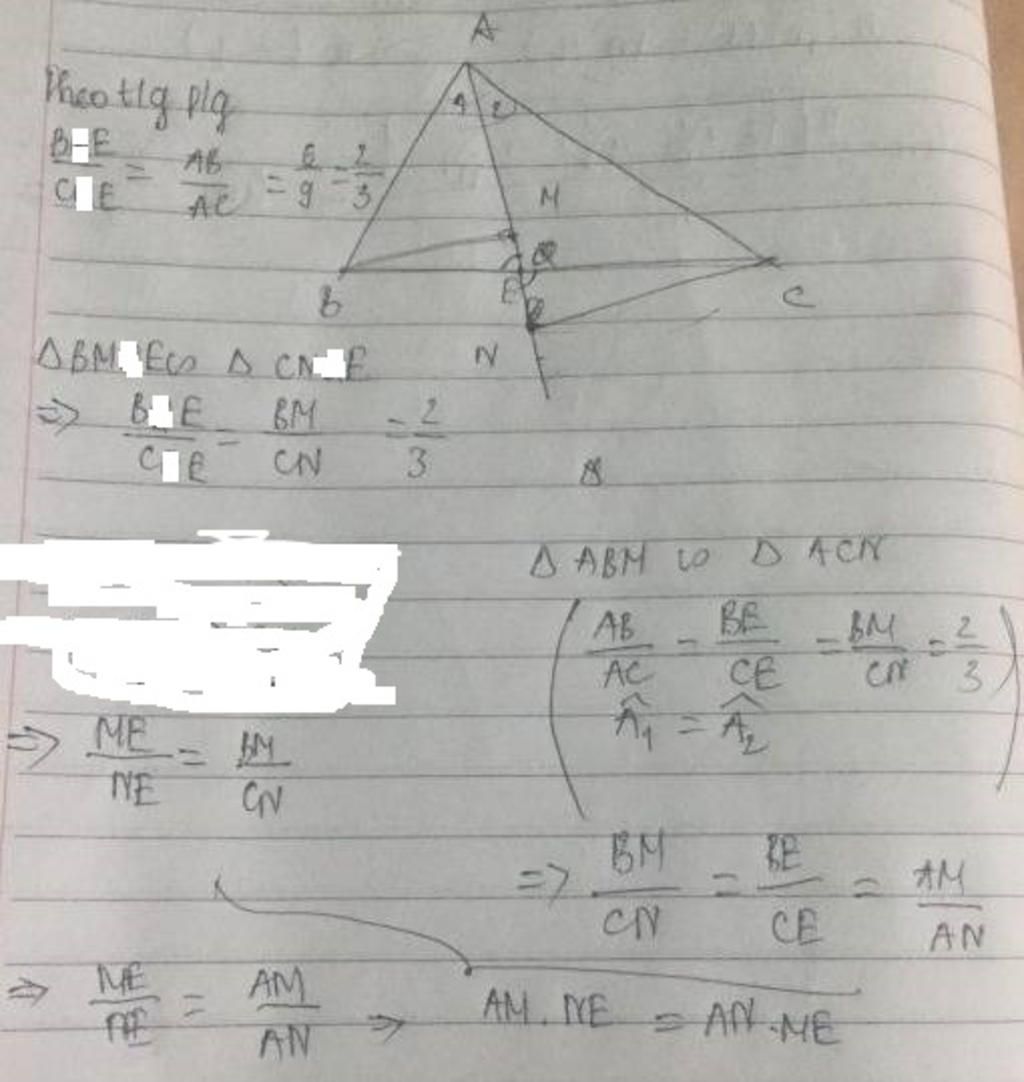 A
Theo t/g p/g
1 2
BE/CE = AB/AC = 6/9 = 2/3
M
B
E
C
N
Δ BME ∽ Δ CNE
=> BE/CE = BM/CN = 2/3
Δ ABM ∽ Δ ACN
( AB/AC = BE/CE = BM/CN = 2/3
Â₁ = Â₂ )
=> ME/NE = BM/CN
=> BM/CN = BE/CE = AM/AN
=> ME/NE = AM/AN => AM.NE = AN.ME